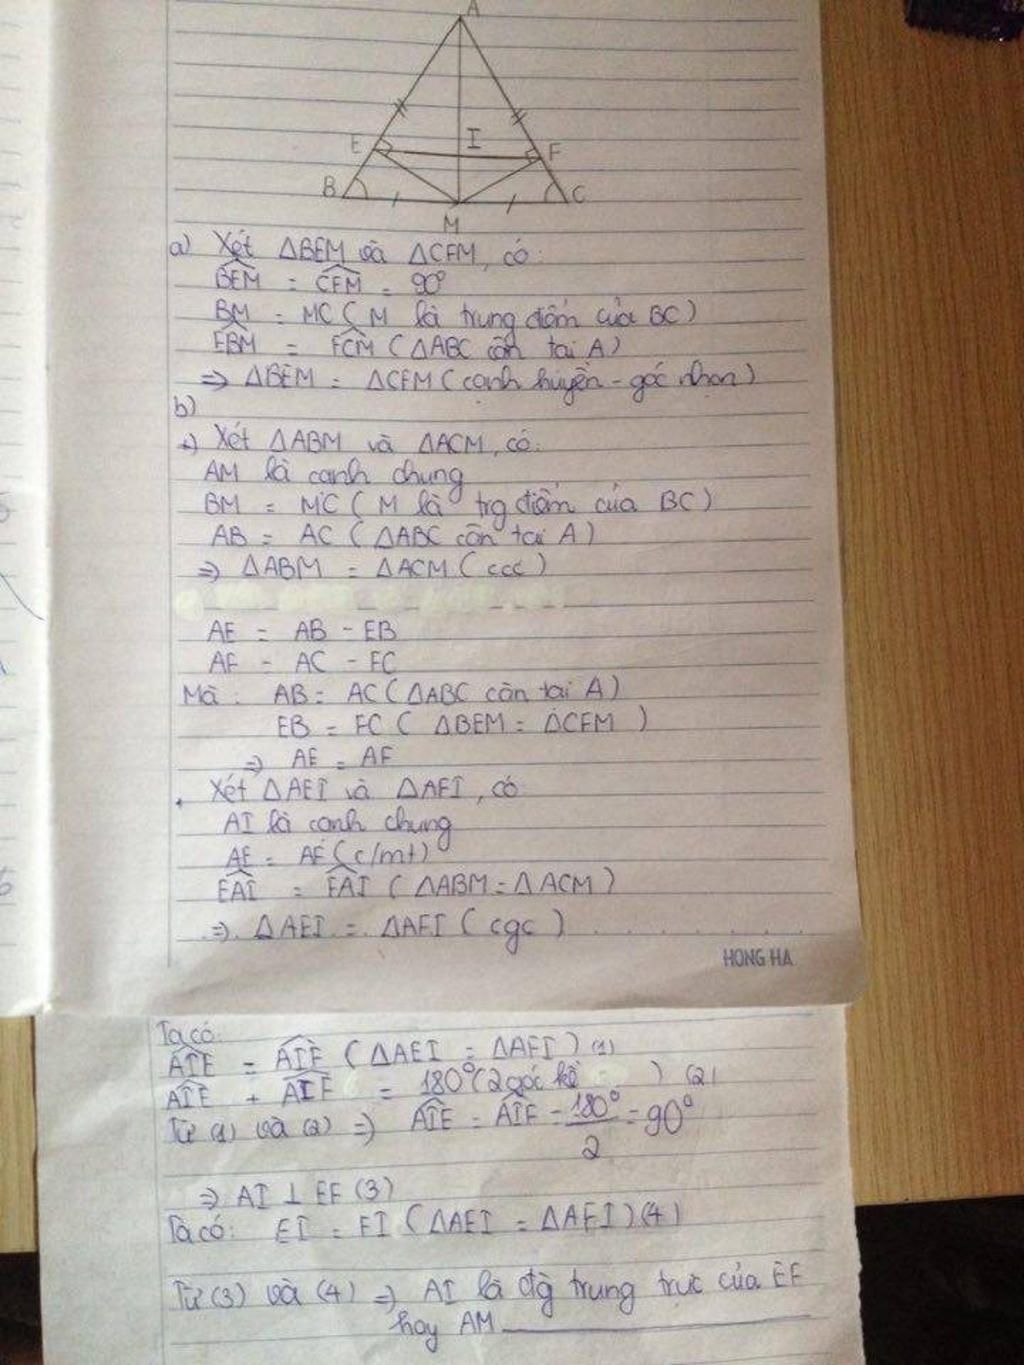 A
E
I
F
B
C
M
a) Xét ΔBEM và ΔCFM, có:
BEM = CFM = 90°
BM = MC (M là trung điểm của BC)
EBM = FCM (ΔABC cân tại A)
=> ΔBEM = ΔCFM (cạnh huyền - góc nhọn)
b)
+) Xét ΔABM và ΔACM, có:
AM là cạnh chung
BM = MC (M là trg điểm của BC)
AB = AC (ΔABC cân tại A)
=> ΔABM = ΔACM (ccc)
AE = AB - EB
AF = AC - FC
Mà: AB = AC (ΔABC cân tại A)
EB = FC (ΔBEM = ΔCFM)
=> AE = AF
Xét ΔAEI và ΔAFI, có
AI là cạnh chung
AE = AF (c/mt)
EAI = FAI (ΔABM = ΔACM)
=> ΔAEI = ΔAFI (cgc)
HONG HA
Ta có:
AIE = AIF (ΔAEI = ΔAFI) (1)
AIE + AIF = 180° (2 góc kề ) (2)
Từ (1) và (2) => AIE = AIF = 180°/2 = 90°
=> AI ⊥ EF (3)
Ta có: EI = FI (ΔAEI = ΔAFI) (4)
Từ (3) và (4) => AI là đg trung trực của EF
hay AM